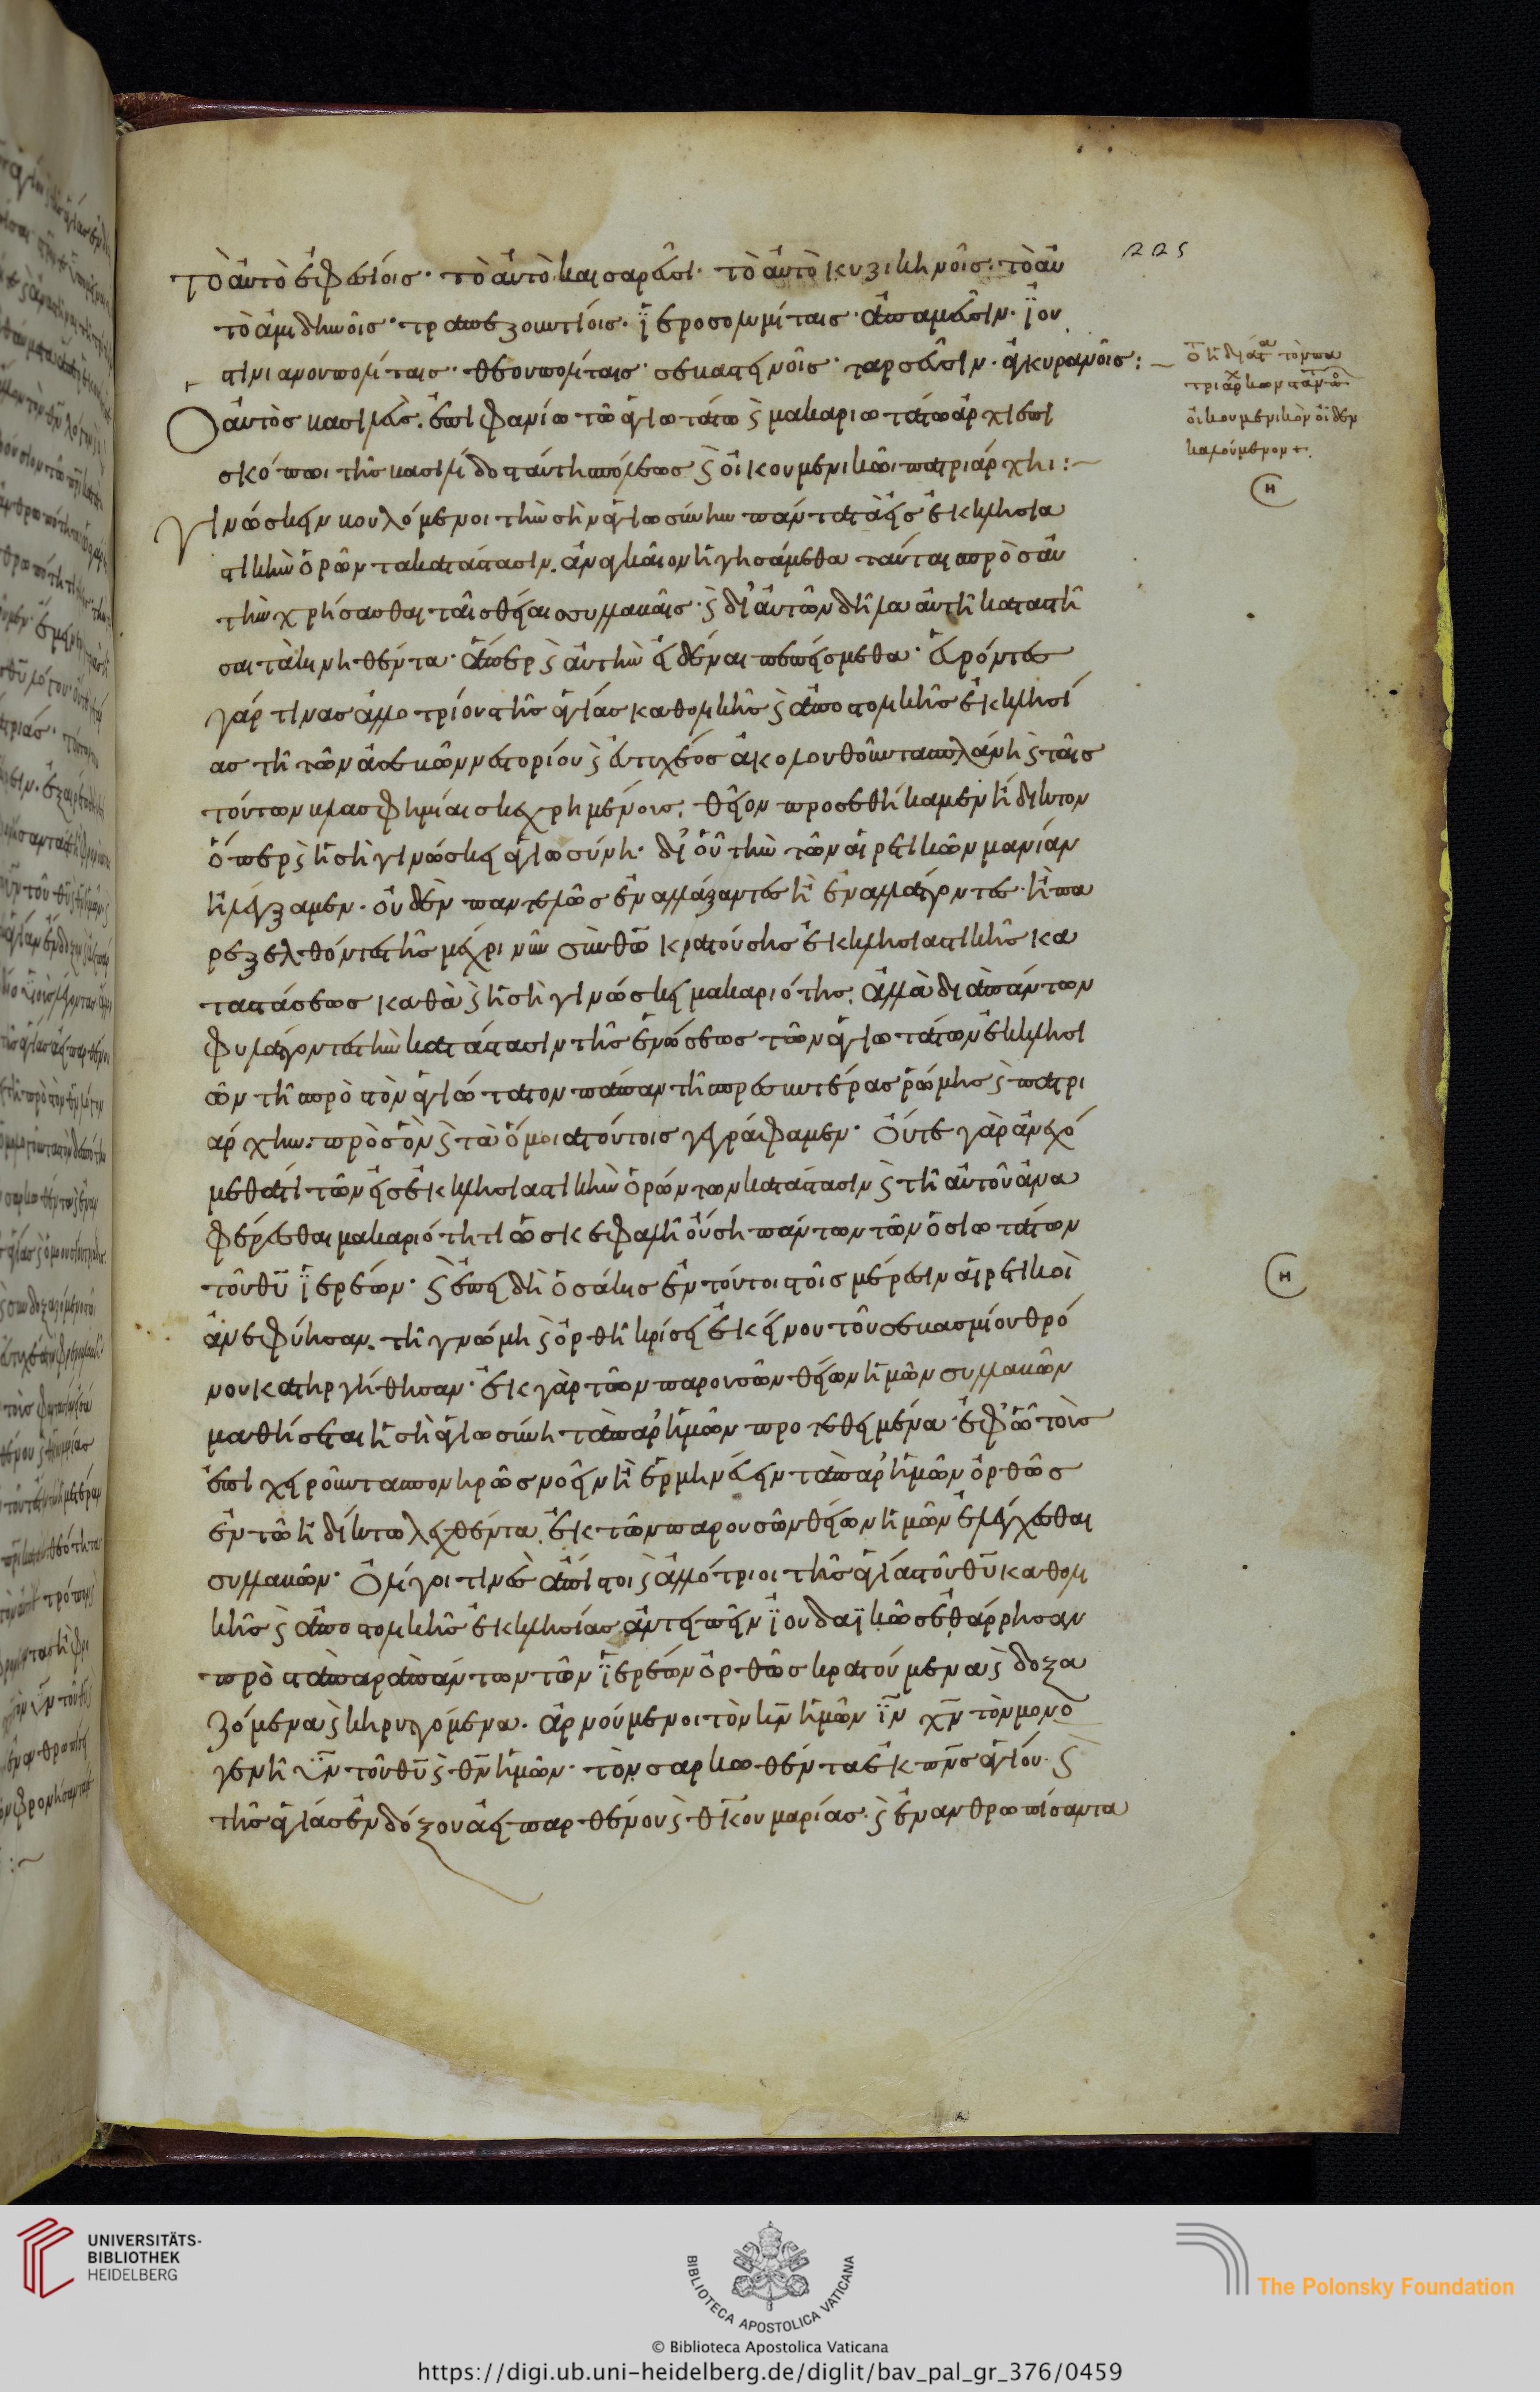 τὸ αὐτὸ ἐφεσίοις· τὸ αὐτὸ καισαρεῦσι· τὸ αὐτὸ κυζικηνοῖς· τὸ αὐ
τὸ ἀμιδηνοῖς· τραπεζουντίοις· ἱεροσολυμίταις· ἀπαμεῦσιν· ἰου
στινιανουπολίταις· θεουπολίταις· σεβαστηνοῖς· ταρσεῦσιν· ἀγκυρανοῖς :~
225
Ὁ αὐτὸς βασιλεὺς. ἐπιφανίω τῶ ἁγιωτάτω ϗ μακαριωτάτω ἀρχιεπι
σκόπωι τῆς βασιλίδος ταύτης πόλεως ϗ οἰκουμενικῶι πατριάρχηι :~
γινώσκειν βουλόμενοι τὴν σὴν ἁγιωσύνην πάντα τὰ εἰς ἐκκλησια
στικὴν ὁρῶντα κατάστασιν. ἀναγκαῖον ἡγησάμεθα ταύταις πρὸς αὐ
τὴν χρήσασθαι ταῖς θείαις συλλαβαῖς· ϗ δι' αὐτῶν δῆλα αὐτῆ καταστῆ
σαι τὰ κινηθέντα· ἅπερ ϗ αὐτὴν εἰδέναι πεπείσμεθα· εὑρόντες
γάρ τινας ἀλλοτρίους τῆς ἁγίας καθολικῆς ϗ ἀποστολικῆς ἐκκλησί
ας τῆ τῶν ἀσεβῶν νεστορίου ϗ εὐτυχέος ἀκολουθοῦντας πλάνη ϗ ταῖς
τούτων βλασφημίαις κεχρημένους. θεῖον προσεθήκαμεν ἤδικτον
ὅπερ ϗ ἡ σὴ γινώσκει ἁγιωσύνη· δι' οὗ τὴν τῶν αἱρετικῶν μανίαν
ἠλέγξαμεν· οὐδὲν παντελῶς ἐναλλάξαντες ἢ ἐναλλάττοντες· ἢ πα
ρεξελθόντες τῆς μέχρι νῦν σὺν θῶ κρατούσης ἐκκλησιαστικῆς κα
ταστάσεως καθὰ ϗ ἡ σὴ γινώσκει μακαριότης. ἀλλὰ διὰ πάντων
φυλάττοντες τὴν κατάστασιν τῆς ἑνώσεως τῶν ἁγιωτάτων ἐκκλησι
ῶν τῆ πρὸς τὸν ἁγιώτατον πάπαν τῆς πρεσβυτέρας ῥώμης ϗ πατρι
άρχην· πρὸς ὃν ϗ τὰ ὅμοια τούτοις γεγράφαμεν· Οὔτε γὰρ ἀνεχό
μεθά τι τῶν εἰς ἐκκλησιαστικὴν ὁρώντων κατάστασιν ϗ τῆ αὐτοῦ ἀνα
φέρεσθαι μακαριότητι ὡς κεφαλῆ οὔση πάντων τῶν ὁσιωτάτων
τοῦ θυ ἱερέων· ϗ ἐπειδὴ ὁσάκις ἐν τούτοις τοῖς μέρεσιν αἱρετικοὶ
ἀνεφύησαν. τῆ γνώμη ϗ ὀρθῆ κρίσει ἐκείνου τοῦ σεβασμίου θρό
νου κατηργήθησαν· ἐκ γὰρ τῶν παρουσῶν θείων ἡμῶν συλλαβῶν
μαθήσεται ἡ σὴ ἁγιωσύνη τὰ παρ' ἡμῶν προτεθειμένα· ἐφ' ὧ τοὺς
ἐπιχειροῦντας πονηρῶς νοεῖν ἢ ἑρμηνεύειν τὰ παρ' ἡμῶν ὀρθῶς
ἐν τῶ ἠδίκτω λεχθέντα. ἐκ τῶν παρουσῶν θείων ἡμῶν ἐλέγχεσθαι
συλλαβῶν· Ὀλίγοι τινὲς ἄπιστοι ϗ ἀλλότριοι τῆς ἁγίας τοῦ θυ καθολι
κῆς ϗ ἀποστολικῆς ἐκκλησίας ἀντειπεῖν ἰουδαϊκῶς ἐθάρρησαν
πρὸς τὰ παρὰ πάντων τῶν ἱερέων ὀρθῶς κρατούμενα ϗ δοξα
ζόμενα ϗ κηρυττόμενα. ἀρνούμενοι τὸν κν ἡμῶν ιν χν τὸν μονο
γενῆ υν τοῦ θυ ϗ θν ἡμῶν· τὸν σαρκωθέντα ἐκ πνς ἁγίου· ϗ
τῆς ἁγίας ἐνδόξου ἀειπαρθένου ϗ θκου μαρίας· ϗ ἐνανθρωπήσαντα
ὅτι διάτα τὸν πα
τριάρχ κωνσταν
οἰκουμενικὸν οἶδεν
καλούμενον.
UNIVERSITÄTS-
BIBLIOTHEK
HEIDELBERG
BIBLIOTECA APOSTOLICA VATICANA
The Polonsky Foundation
© Biblioteca Apostolica Vaticana
https://digi.ub.uni-heidelberg.de/diglit/bav_pal_gr_376/0459